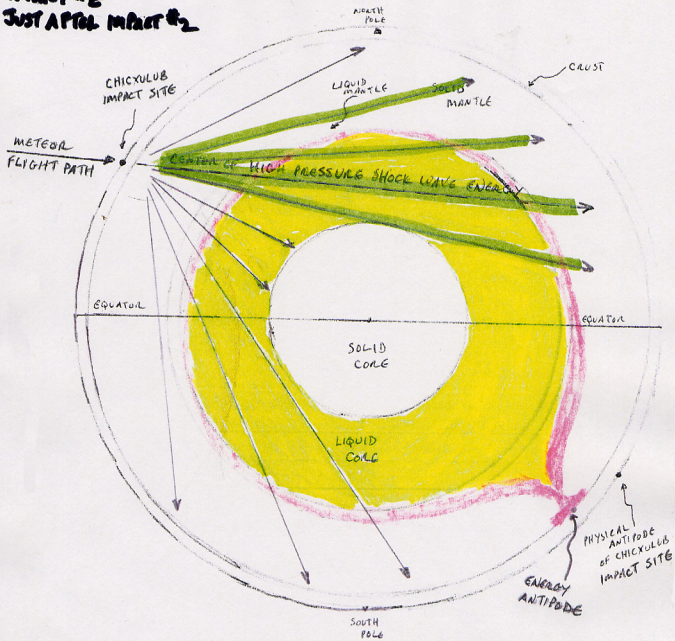 JUST AFTER IMPACT #2
NORTH
POLE
CRUST
CHICXULUB
IMPACT SITE
LIQUID
MANTLE
SOLID
MANTLE
METEOR
FLIGHT PATH
CENTER OF HIGH PRESSURE SHOCK WAVE ENERGY
EQUATOR
EQUATOR
SOLID
CORE
LIQUID
CORE
PHYSICAL
ANTIPODE
OF CHICXULUB
IMPACT SITE
ENERGY
ANTIPODE
SOUTH
POLE